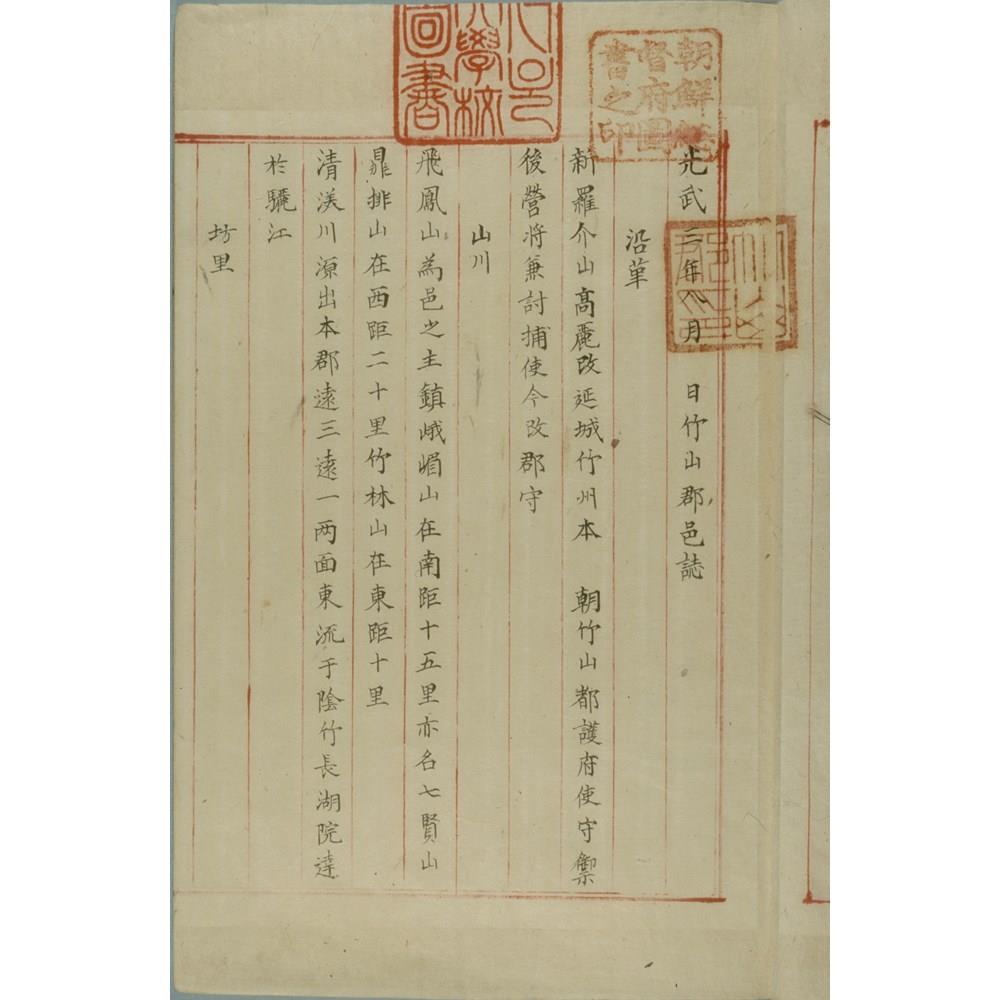 光武三年 月 日竹山郡邑誌
沿革
新羅介山高麗改延城竹州本 朝竹山都護府使守禦
後營將兼討捕使今改郡守
山川
飛鳳山為邑之主鎮峨嵋山在南距十五里亦名七賢山
排山在西距二十里竹林山在東距十里
清渼川源出本郡遠三遠一两面東流于陰竹長湖院達
於驪江
坊里
朝鮮總督府圖書之印
學校圖書